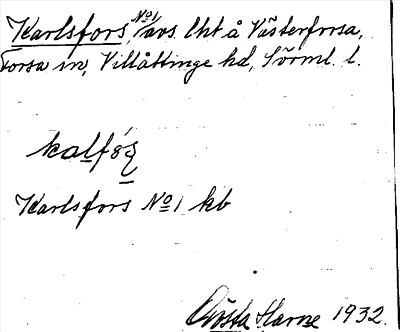 Karlsfors, No 1, avs. lht å Västerforsa,
Forsa sn, Villåttinge hd, Sörml. l.
kalfóş
Karlsfors No 1 kb
Gösta Harne 1932.